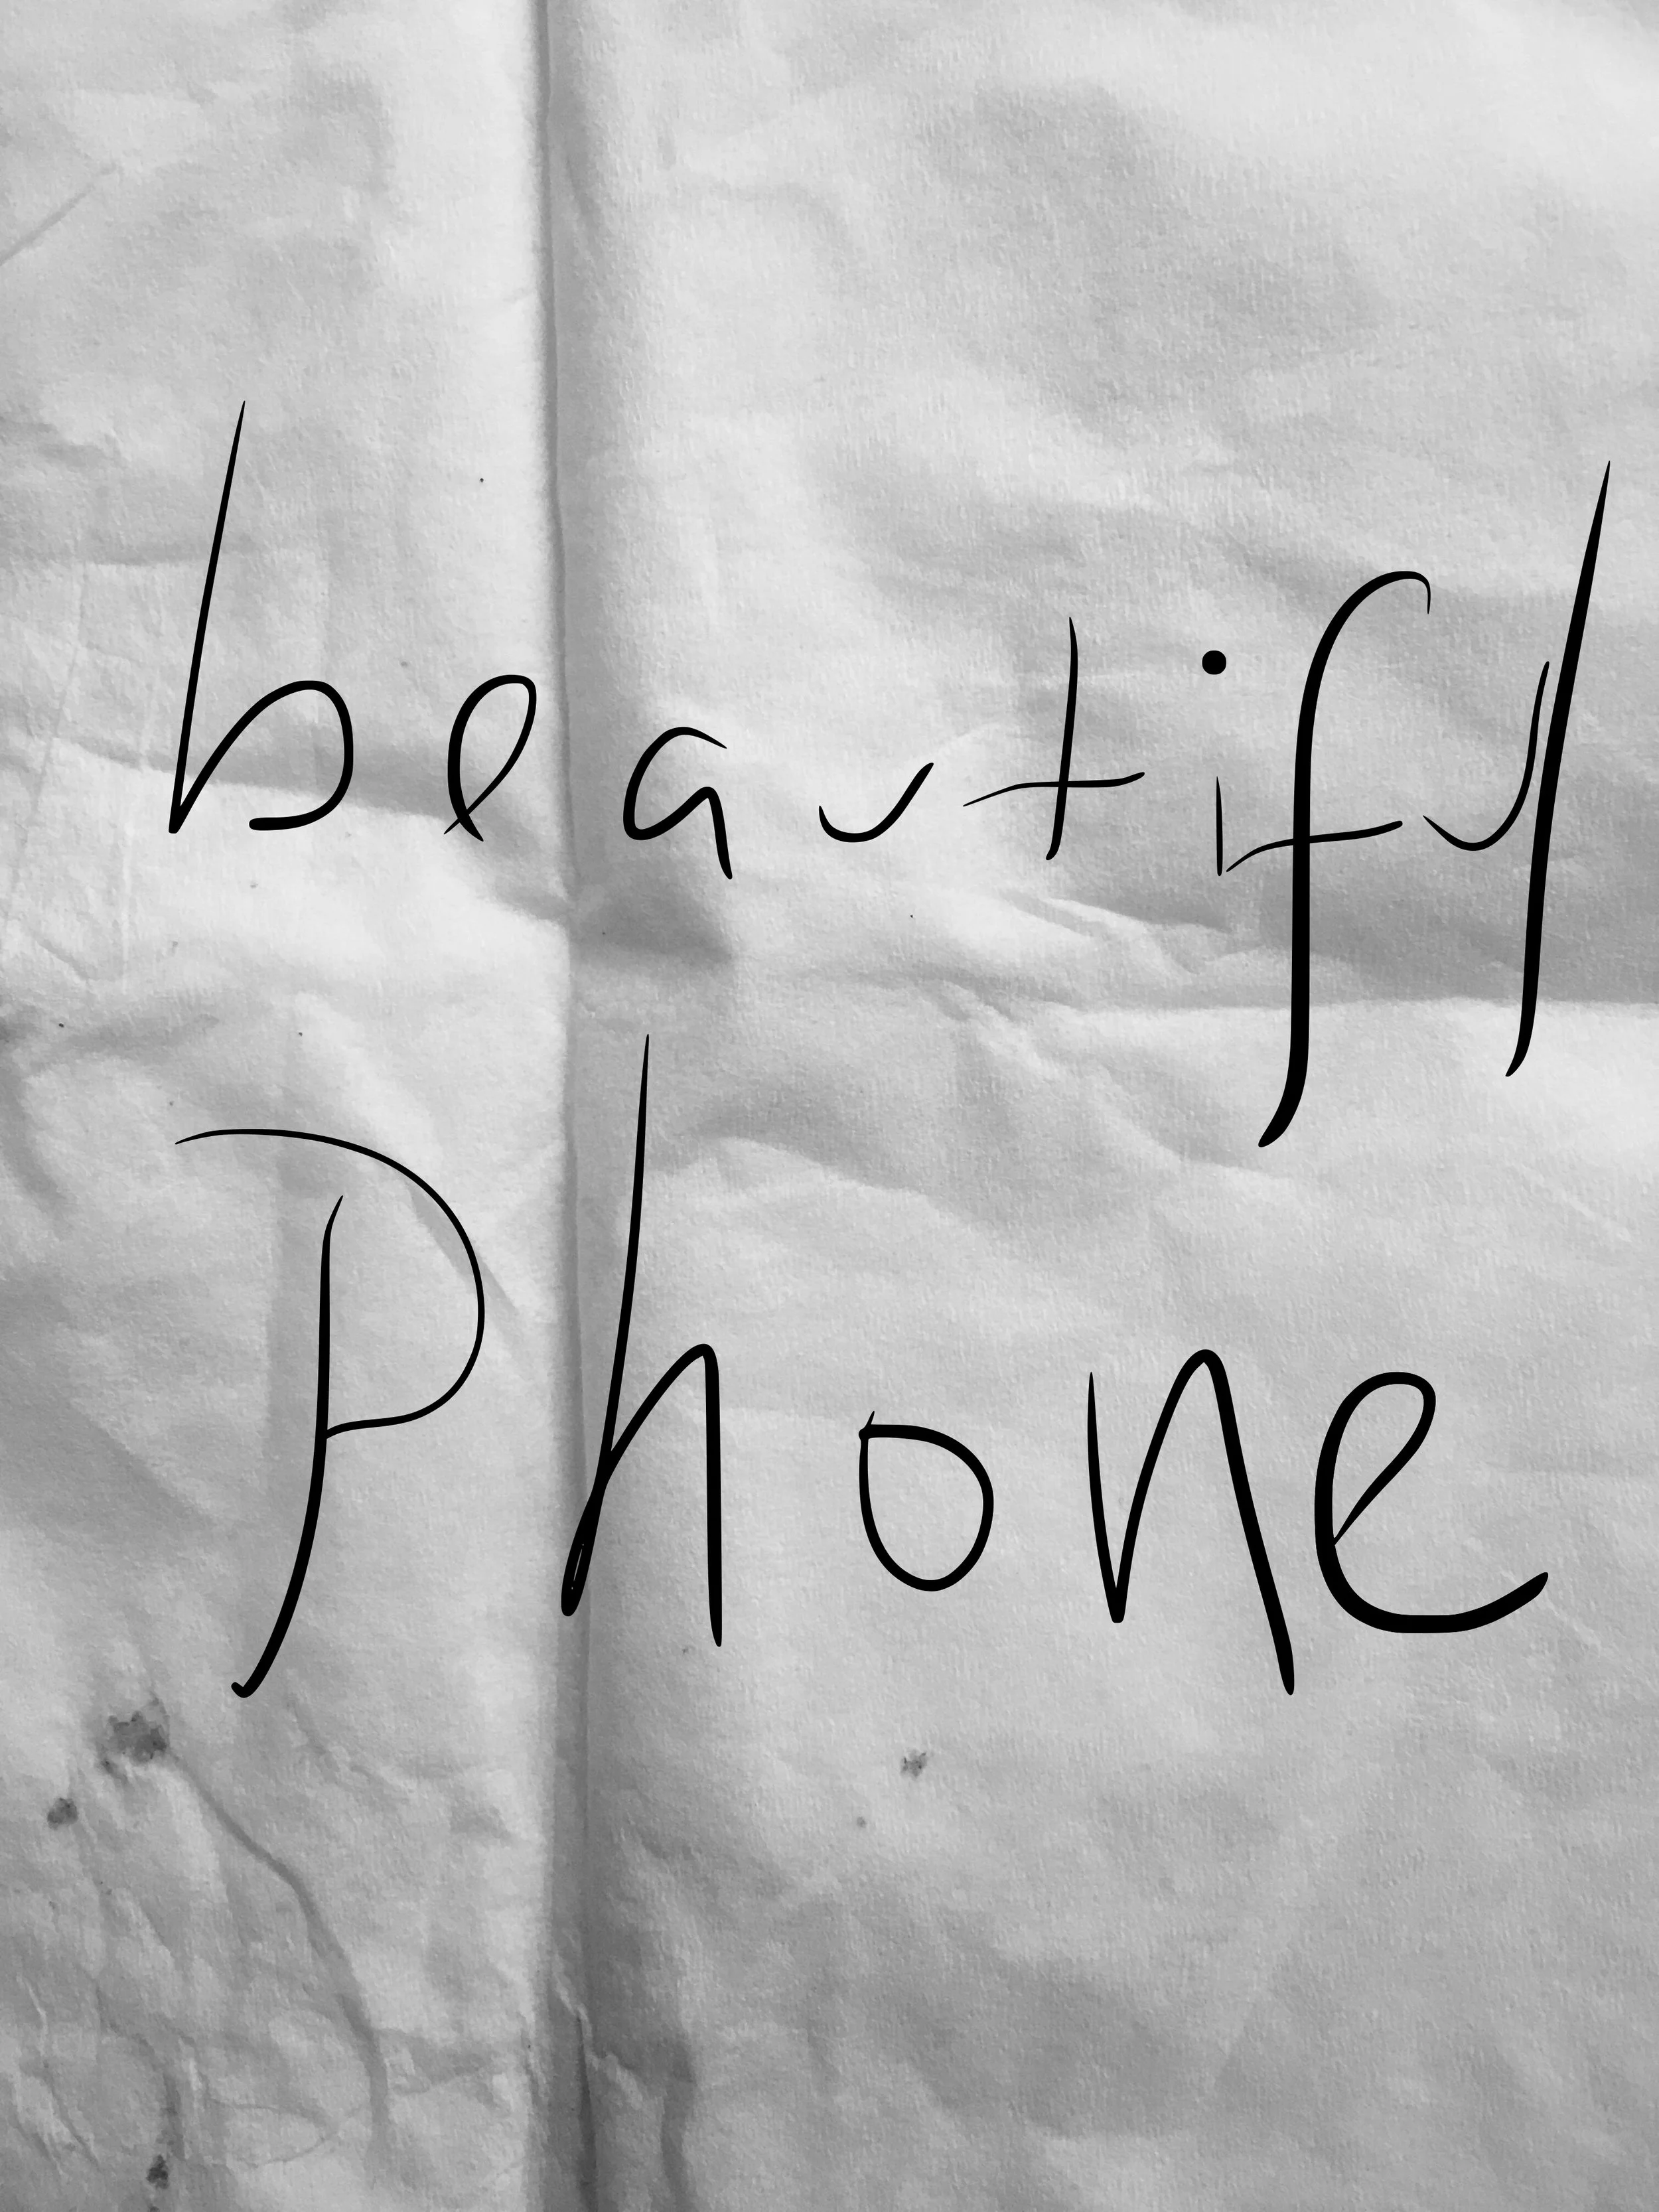 beautiful
Phone